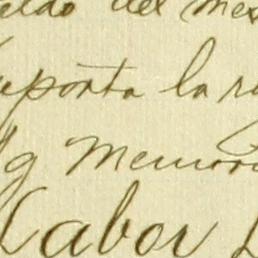 eldo del mes
uporta la
g Memor
Labor